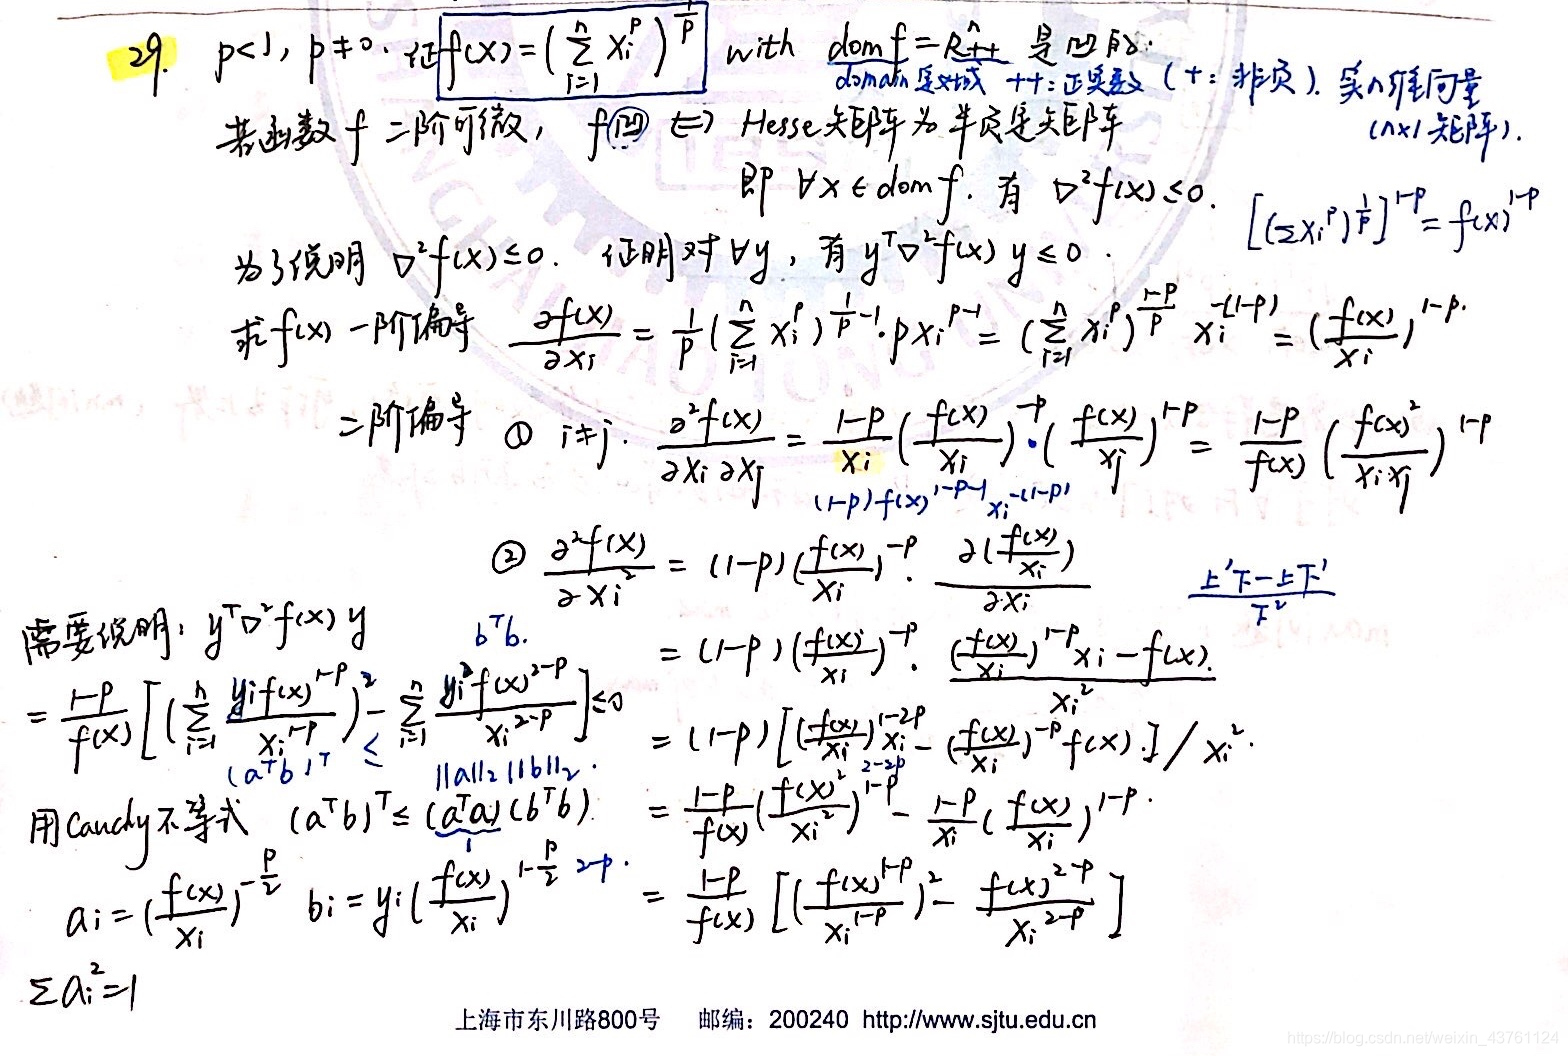 29. p<1, p≠0. 证 f(x)=(∑_{i=1}^{n} x_i^p)^{1/p} with dom f = R_{++}^n 是凹的.
domain 定义域 ++: 正实数 (+: 非负). 实n维向量
(n×1 矩阵).
若函数 f 二阶可微, f凹 ⟺ Hesse矩阵为半负定矩阵
即 ∀x∈dom f. 有 ∇²f(x)≤0.
[(∑x_i^p)^{1/p}]^{1-p} = f(x)^{1-p}
为了说明 ∇²f(x)≤0. 证明对∀y, 有 y^T∇²f(x) y≤0.
求f(x)一阶偏导 ∂f(x)/∂x_i = 1/p (∑_{i=1}^{n} x_i^p)^{1/p-1}·p x_i^{p-1} = (∑_{i=1}^{n} x_i^p)^{(1-p)/p} x_i^{-(1-p)} = (f(x)/x_i)^{1-p}.
二阶偏导 ① i≠j. ∂²f(x)/∂x_i∂x_j = (1-p)/x_i (f(x)/x_i)^{-p}·(f(x)/x_j)^{1-p} = (1-p)/f(x) (f(x)²/(x_i x_j))^{1-p}
(1-p) f(x)^{1-p-1} x_i^{-(1-p)}
② ∂²f(x)/∂x_i² = (1-p)(f(x)/x_i)^{-p}·∂(f(x)/x_i)/∂x_i
(上'下-上下')/下²
= (1-p)(f(x)/x_i)^{-p}·((f(x)/x_i)^{1-p} x_i - f(x))/x_i²
= (1-p)[(f(x)/x_i)^{1-2p} x_i - (f(x)/x_i)^{-p} f(x).]/x_i².
2-2p
= (1-p)/f(x) (f(x)²/x_i²)^{1-p} - (1-p)/x_i (f(x)/x_i)^{1-p}.
= (1-p)/f(x) [(f(x)^{1-p}/x_i^{1-p})² - f(x)^{2-p}/x_i^{2-p}]
需要说明: y^T∇²f(x) y
b^Tb.
= (1-p)/f(x) [(∑_{i=1}^{n} y_i f(x)^{1-p}/x_i^{1-p})² - ∑_{i=1}^{n} y_i² f(x)^{2-p}/x_i^{2-p}] ≤0
(a^Tb)^T ≤ ||a||₂||b||₂.
用Cauchy不等式 (a^Tb)^T ≤ (a^Ta)(b^Tb)
1
a_i = (f(x)/x_i)^{-p/2} b_i = y_i(f(x)/x_i)^{1-p/2} 2-p.
∑a_i²=1
上海市东川路800号 邮编：200240 http://www.sjtu.edu.cn
https://blog.csdn.net/weixin_43761124